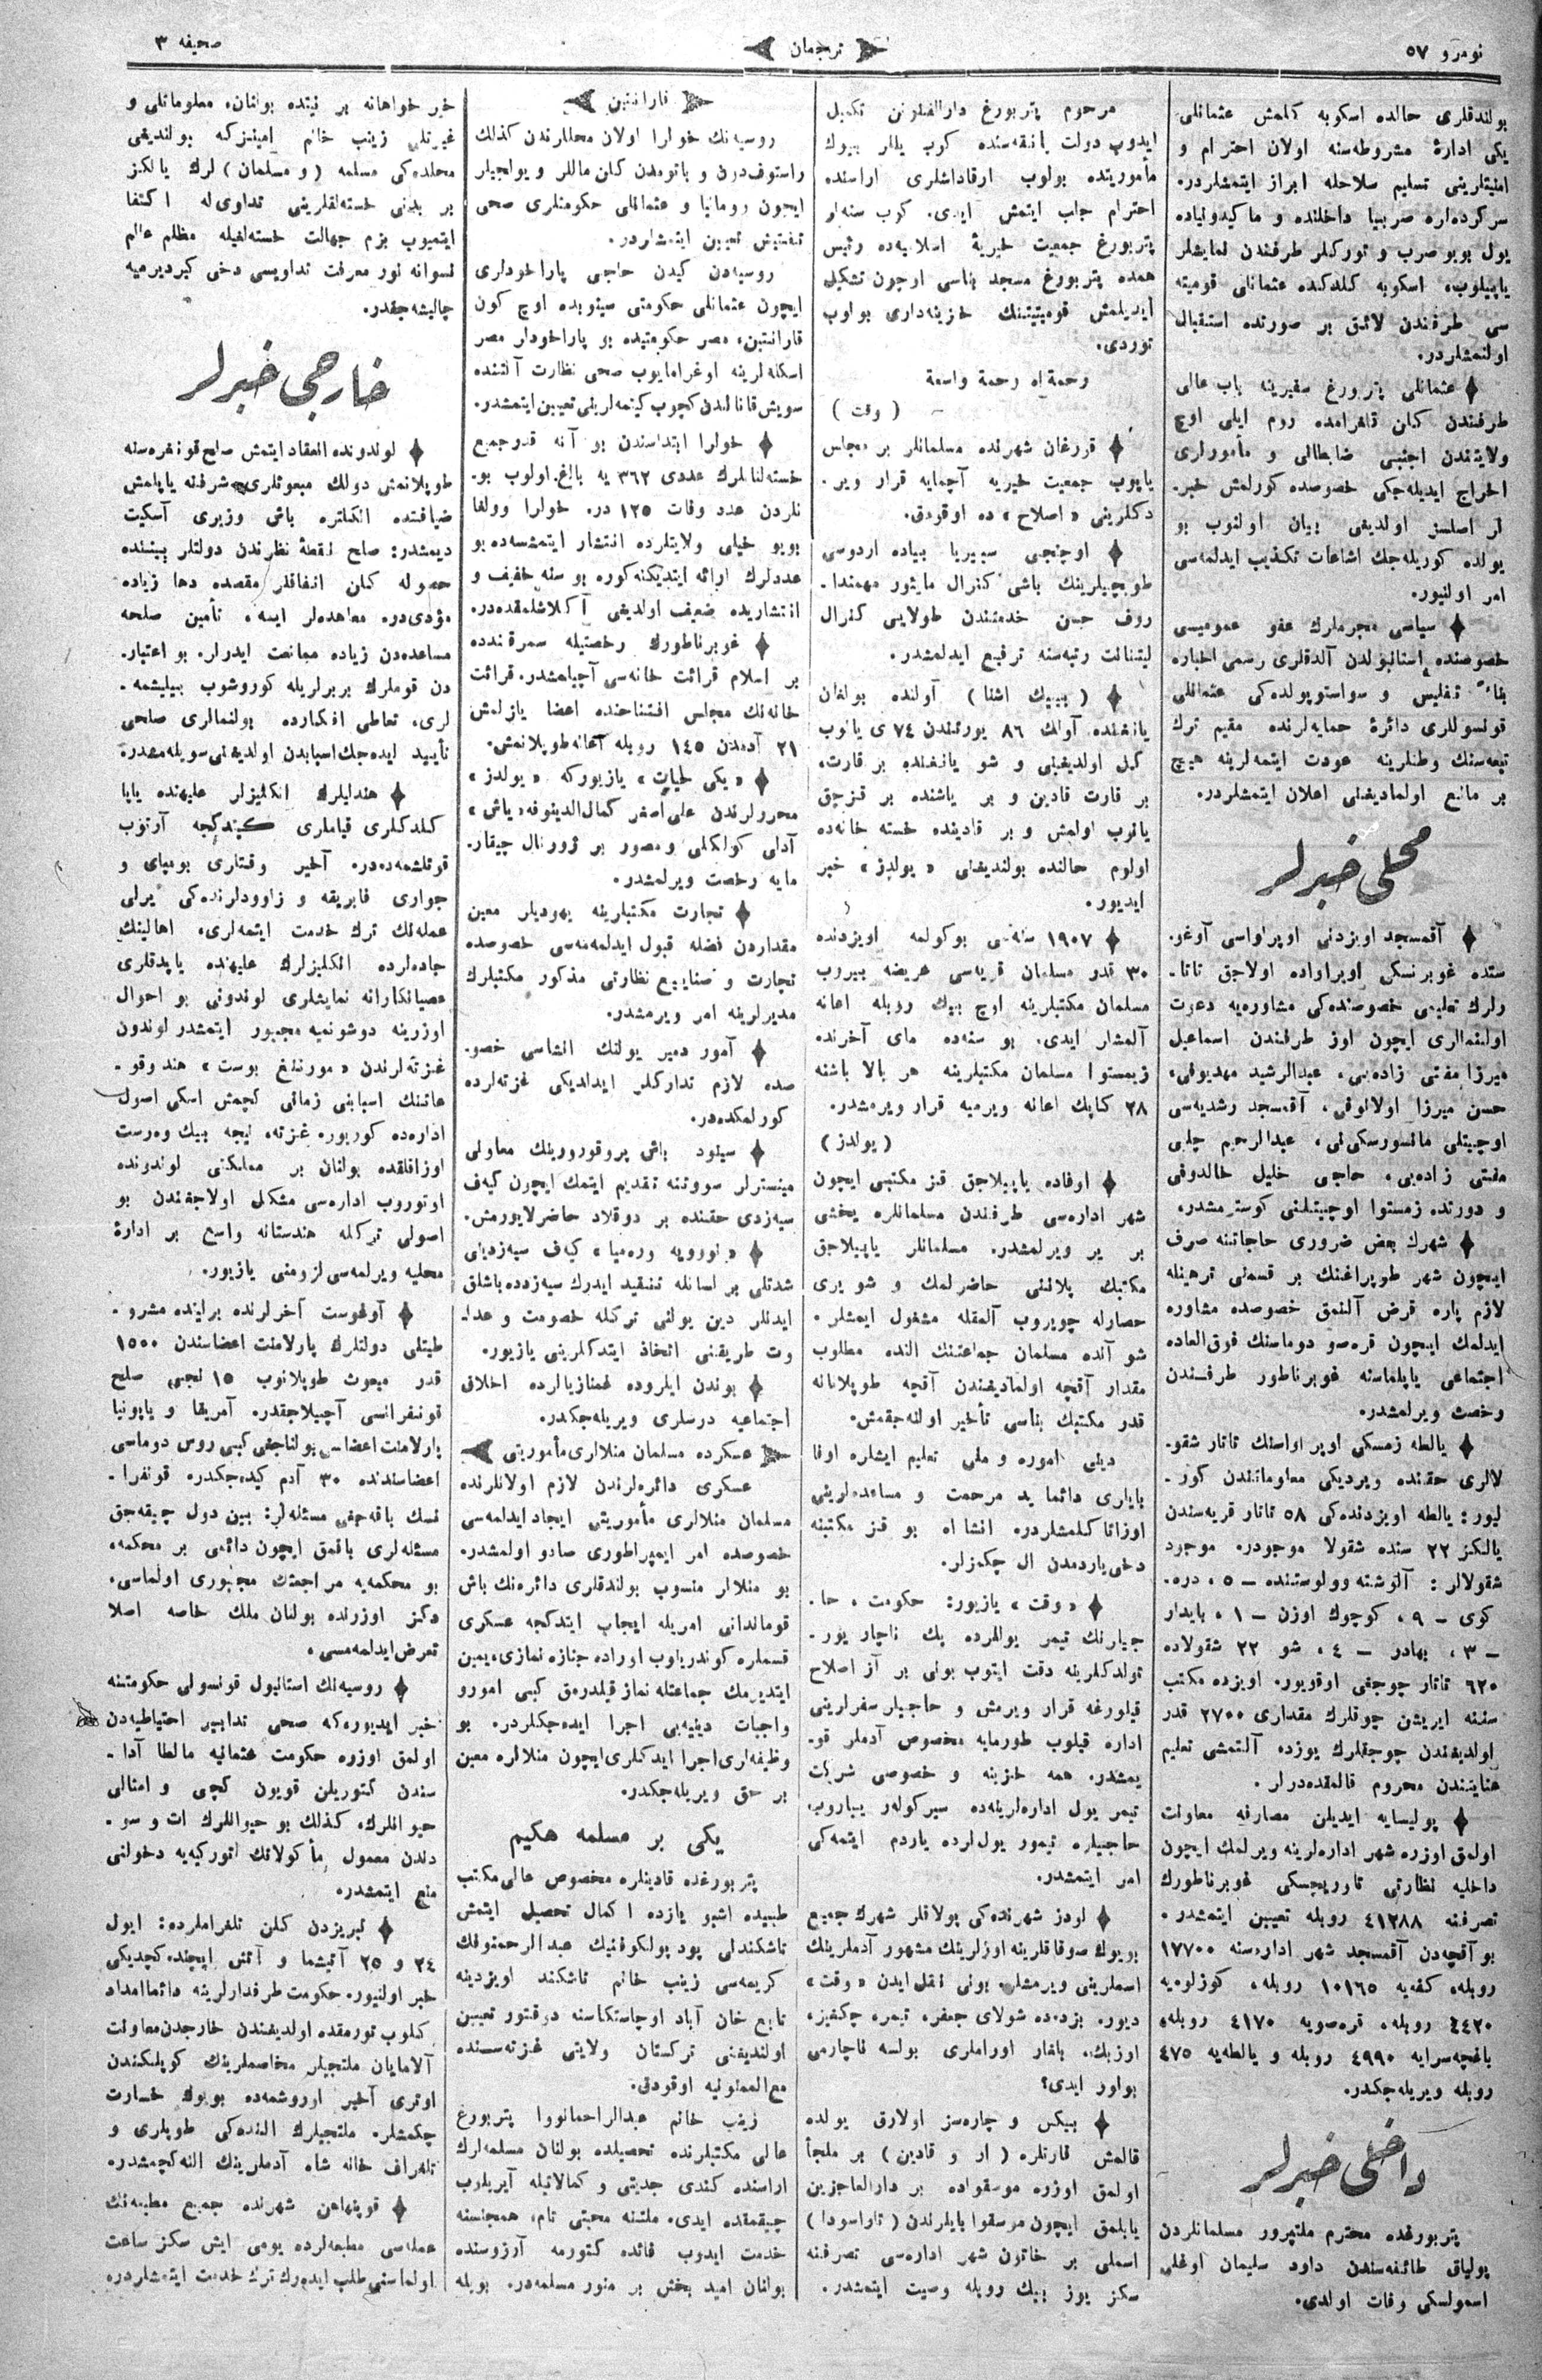 نومرو ٥٧
ترجمان
صحیفه ٣
بولندقلری حالده اسکوبه کلمش عثمانلی
یکی ادارۀ مشروطه‌سنه اولان احترام و
امنیتلرینی تسلیم سلاحله ابراز ایتمشلردر.
سرکرده‌لره صربیا داخلنده و ماکیدونیاده
یول بویو صرب و تورکلر طرفندن نمایشلر
یاپیلوب، اسکوبه کلدکده عثمانلی قومیته
سی طرفندن لائق بر صورتده استقبال
اولنمشلردر.
عثمانلی پتربورغ سفیرینه باب عالی
طرفندن کلن تلغرامده روم ایلی اوچ
ولایتندن اجنبی ضابطالی و مأمورلری
اخراج ایدیله‌جکی خصوصده کورلمش خبر.
لر اصلسز اولدیغی بیان اولنوب بو
یولده کوریله‌جك اشاعات تکذیب ایدلمه‌سی
امر اولنیور.
سیاسی مجرملرك عفو عمومیسی
خصوصنده استانبولدن آلدقلری رسمی اخباره
بناءً تفلیس و سواستوپولده‌کی عثمانلی
قونسوللری دائرۀ حمایه‌لرنده مقیم ترك
تبعه‌سنك وطنلرینه عودت ایتمه‌لرینه هیچ
بر مانع اولمادیغنی اعلان ایتمشلردر.
محلی خبرلر
آقمسجد اویزدنی اوپراواسی آوغو.
ستده غوبرنسکی اوپراواده اولاجق تاتا.
رلرك تعلیمی خصوصنده‌کی مشاوره‌یه دعوت
اولنمالری ایچون اوز طرفندن اسماعیل
میرزا مفتی زاده‌یی، عبدالرشید مهدیوفی،
حسن میرزا اولانوفی، آقمسجد رشدیه‌سی
اوچیتلی مانسورسکی‌نی، عبدالرحیم چلبی
مفتی زاده‌یی، حاجی خلیل خالدوفی
و دورنده زمستوا اوچیتلنی کوسترمشدر.
شهرك بعض ضروری حاجاتنه صرف
ایچون شهر طوپراغنك بر قسمنی ترهینله
لازم پاره قرض آلنمق خصوصده مشاوره
ایدلمك ایچون قره‌صو دوماسنك فوق‌العاده
اجتماعی یاپلماسنه غوبرناطور طرفندن
رخصت ویرلمشدر.
یالطه زمسکی اوپراواسنك تاتار شقو.
لالری حقنده ویردیکی معلوماتندن کور.
لیور: یالطه اویزدنده‌کی ٥٨ تاتار قریه‌سندن
یالکز ٢٢ سنده شقولا موجودر. موجود
شقولالر: آلوشته وولوستنده – ٥، دره.
کوی – ٩، کوچوك اوزن – ١، بایدار
– ٣، بهادر – ٤، شو ٢٢ شقولاده
٦٢٠ تاتار چوجغی اوقویور. اویزده مکتب
سننه ایریشن چوقلرك مقداری ٢٧٠٠ قدر
اولدیغندن چوجقلرك یوزده آلتمشی تعلیم
عنایتندن محروم قالمقده‌درلر.
پولیسایه ایدیلن مصارفه معاونت
اولمق اوزره شهر اداره‌لرینه ویرلمك ایچون
داخلیه نظارتی تاوریچسکی غوبرناطورك
تصرفنه ٤١٢٨٨ روبله تعیین ایتمشدر.
بو آقچه‌دن آقمسجد شهر اداره‌سنه ١٧٧٠٠
روبله، کفه‌یه ١٠١٦٥ روبله، کوزلوه‌یه
٤٤٢٠ روبله، قره‌صویه ٤١٧٠ روبله،
باغچه‌سرایه ٤٩٩٠ روبله و یالطه‌یه ٤٧٥
روبله ویریله‌جکدر.
داخلی خبرلر
پتربورغده محترم ملتپرور مسلمانلردن
پولیاق طائفه‌سندن داود سلیمان اوغلی
اسمولسکی وفات اولدی.
مرحوم پتربورغ دارالفنونن تکمیل
ایدوب دولت بانقه‌سنده کوب یللر بیوك
مأموریتده بولوب ارقاداشلری اراسنده
احترام جلب ایتمش ایدی. کوب سنه‌لر
پتربورغ جمعیت خیریۀ اسلامیه‌ده رئیس
همده پتربورغ مسجد بناسی اوچون تشکیل
ایدیلمش قومیتیتنك خزینه‌داری بولوب
توردی.
رحمة‌اه رحمة واسعة
(وقت)
قورغان شهرنده مسلمانلر بر مجلس
یاپوب جمعیت خیریه آچمایه قرار ویر.
دکلرینی «اصلاح» ده اوقودق.
اوچنجی سیبیریا پیاده اردوسی
طوپچیلرینك باشی کنرال مایور مهمندا.
روف حسن خدمتندن طولایی کنرال
لیتنانت رتبه‌سنه ترفیع ایدلمشدر.
(بیبیك اشنا) آولنده بولغان
یانغنده آولك ٨٦ یورتندن ٧٤ ی یانوب
کل اولدیغنی و شو یانغنده بر قارت،
بر قارت قادین و بر یاشنده بر قزچق
یانوب اولمش و بر قادینده خسته خانه‌ده
اولوم حالنده بولندیغنی «یولدز» خبر
ایدیور.
١٩٠٧ سنه‌سی بوکولمه اویزدنده
٣٠ قدو مسلمان قریه‌سی عریضه بیروب
مسلمان مکتبلرینه اوچ بیك روبله اعانه
آلمشلر ایدی. بو سنه‌ده مای آخرنده
زیمستوا مسلمان مکتبلرینه هر بالا باشنه
٢٨ کاپك اعانه ویرمیه قرار ویرمشدر.
(یولدز)
اوفاده یاپیلاجق قز مکتبی ایچون
شهر اداره‌سی طرفندن مسلمانلره یخشی
بر یر ویرلمشدر. مسلمانلر یاپیلاجق
مکتبك پلاننی حاضرلمك و شو یری
حصارله چویروب آلمقله مشغول ایمشلر.
شو آنده مسلمان جماعتنك النده مطلوب
مقدار آقچه اولمادیغندن آقچه طوپلانانه
قدو مکتبك بناسی تأخیر اولنه‌جقمش.
دینی اموره و ملی تعلیم ایشلره اوفا
بایلری دائما ید مرحمت و مساعده‌لرینی
اوزاتا کلمشلردر. انشا اه بو قز مکتبنه
دخی یاردمدن ال چکمزلر.
«وقت» یازیور: حکومت، حا.
جیلرنك تیمر یوللرده پك ناچار یور.
تولدکلرینه دقت ایتوب بونی بر آز اصلاح
قیلورغه قرار ویرمش و حاجیلر سفرلرینی
اداره قیلوب طورمایه مخصوص آدملر قو.
یمشدر. همه خزینه و خصوصی شرکت
تیمر یول اداره‌لرینه‌ده سیرکولر یباروب،
حاجیلره تیمور یوللرده یاردم ایتمه‌کی
امر ایتمشدر.
لودز شهرنده‌کی پولاقلر شهرك جمیع
بویوك سوقاقلرینه اوزلرینك مشهور آدملرینك
اسملرینی ویرمشلر. بونی نقل ایدن «وقت»
دیور. بزده‌ده شولای جعفر، تیمر، چکفیز،
اوزبك، بلغار اوراملری بولسه ناچارمی
بولور ایدی؟
بیکس و چاره‌سز اولارق یولده
قالمش قارتلره (ار و قادین) بر ملجأ
اولمق اوزره موسقواده بر دارالعاجزین
یابلمق ایچون مرسقوا بایلرندن (تاراسودا)
اسملی بر خاتون شهر اداره‌سی تصرفنه
سکز یوز بیك روبله وصیت ایتمشدر.
قارانتین
روسیه‌نك خولرا اولان محللرندن کذلك
راستوف‌درن و باتومدن کلن ماللر و یولجیلر
ایچون رومانیا و عثمانلی حکومتلری صحی
تفتیش تعیین ایتمشلردر.
روسیه‌دن کیدن حاجی پاراخودلری
ایچون عثمانلی حکومتی سینوبده اوچ کون
قارانتین، مصر حکومتیده بو پاراخودلر مصر
اسکله‌لرینه اوغرامایوب صحی نظارت آلتنده
سویش قانالندن کچوب کیتمه‌لرینی تعیین ایتمشدر.
خولرا ابتداسندن بو آنه قدو جمیع
خسته‌لنانلرك عددی ٣٦٢ یه بالغ اولوب بو.
نلردن عدد وفات ١٢٥ در. خولرا وولغا
بویو خیلی ولایتلرده انتشار ایتمشسه‌ده بو
عددلرك ارائه ایتدیکنه کوره بو سنه خفیف و
انتشاریده ضعیف اولدیغی آکلاشلمقده‌در.
غوبرناطورك رخصتیله سمرقندده
بر اسلام قرائت خانه‌سی آچیلمشدر. قرائت
خانه‌نك مجلس افتتاحنده اعضا یازلمش
٢١ آدمدن ١٤٥ روبله آعانه طوپلانمش.
«یکی حیات» یازیورکه «یولدز»
محررلرندن علی‌اصغر کمال‌الدینوفه «یاش»
آدلی کولکلی و مصور بر ژورنال چیقار.
مایه رخصت ویرلمشدر.
تجارت مکتبلرینه یهودیلر معین
مقداردن فضله قبول ایدلمه‌مه‌سی خصوصده
تجارت و صنایع نظارتی مذکور مکتبلرك
مدیرلرینه امر ویرمشدر.
آمور دمیر یولنك انشاسی خصو.
صده لازم تدارکلر ایدلدیکی غزته‌لرده
کورلمکده‌در.
سینود باش پروقورورینك معاونی
مینسترلر سووتنه تقدیم ایتمك ایچون کیه‌ف
سیه‌زدی حقنده بر دوقلاد حاضرلایورمش.
«نوویه وره‌میا» کیه‌ف سیه‌زدینی
شدتلی بر لسانله تنقید ایدرك سیه‌زدده باشلق
ایدنلر دین یولنی ترکله خصومت و عدا.
وت طریقنی اتخاذ ایتدکلرینی یازیور.
بوندن ایلروده غمنازیالرده اخلاق
اجتماعیه درسلری ویریله‌جکدر.
عسکرده مسلمان منلالری مأموریتی
عسکری دائره‌لرندن لازم اولانلرنده
مسلمان منلالری مأموریتی ایجاد ایدلمه‌سی
خصوصده امر ایمپراطوری صادو اولمشدر.
بو منلالر منسوب بولندقلری دائره‌نك باش
قوماندانی امریله ایجاب ایتدکجه عسکری
قسملره کوندریلوب اوراده جنازه نمازی، یمین
ایتدیرمك جماعتله نماز قیلدرمق کبی امورو
واجبات دینیه‌یی اجرا ایده‌جکلردر. بو
وظیفه‌لری اجرا ایدکلری ایچون منلالره معین
بر حق ویریله‌جکدر.
یکی بر مسلمه هکیم
پتربورغده قادینلره مخصوص عالی مکتب
طبیده اشبو یازده اکمال تحصیل ایتمش
تاشکندلی پود پولکوفنیك عبدالرحمنوفك
کریمه‌سی زینب خانم تاشکند اویزدینه
تابع خان آباد اوچاستکاسنه دوقتور تعیین
اولندیغنی ترکستان ولایتی غزته‌سنده
مع‌الممنونیه اوقودق.
زینب خانم عبدالراحمانووا پتربورغ
عالی مکتبلرنده تحصیلده بولنان مسلمه‌لرك
اراسنده کندی جدیتی و کمالاتیله آیریلوب
چیقمقده ایدی. ملتنه محبتی تام، همجنسنه
خدمت ایدوب فائده کتورمه آرزوسنده
بولنان امید بخش بر منور مسلمه‌در. بویله
خیر خواهانه بر نیتده بولنان، معلوماتلی و
غیرتلی زینب خانم امینزکه بولندیغی
محلده‌کی مسلمه (و مسلمان) لرك یالکز
بر بدنی خسته‌لقلرینی تداوی‌له اکتفا
ایتمیوب بزم جهالت خسته‌لغیله مظلم عالم
نسوانه نور معرفت تداویسی دخی کیردیرمیه
چالیشه‌جقدر.
خارجی خبرلر
لوندونده انعقاد ایتمش صلح قونغره‌سنه
طوپلانمش دولك مبعوثلری شرفنه یاپلمش
ضیافتده انکلتره باش وزیری آسکیت
دیمشدر: صلح نقطۀ نظرندن دولتلر بیننده
حصوله کلن اتفاقلر مقصده دها زیاده
مؤدی‌در. معاهده‌لر ایسه، تأمین صلحه
مساعده‌دن زیاده ممانعت ایدرلر. بو اعتبار.
دن قوملرك بربرلریله کوروشوب بیلیشمه.
لری، تعاطی افکارده بولنمالری صلحی
تأیید ایده‌جك اسبابدن اولدیغنی سویله‌مشدر.
هندلیلرك انکلیزلر علیهنده یاپا
کلدکلری قیاملری کیتدکجه آرتوب
قوتلشمه‌ده‌در. آخیر وقتلری بومبای و
جواری فابریقه و زاوودلرنده‌کی یرلی
عمله‌نك ترك خدمت ایتمه‌لری، اهالینك
جاده‌لرده انکلیزلرك علیهنده یاپدقلری
عصیانکارانه نمایشلری لوندونی بو احوال
اوزرینه دوشونمیه مجبور ایتمشدر لوندون
غزته‌لرندن «مورننغ پوست» هند وقو.
عاتنك اسبابنی زمانی کچمش اسکی اصول
اداره‌ده کوریور. غزته، نیجه بیك وه‌رست
اوزاقلقده بولنان بر مملکتی لوندونده
اوتوروب اداره‌سی مشکل اولاجغندن بو
اصولی ترکله هندستانه واسع بر ادارۀ
محلیه ویرلمه‌سی لزومنی یازیور.
آوغوست آخرلرنده برلینده مشرو.
طیتلی دولتلرك پارلامنت اعضاسندن ١٥٠٠
قدر مبعوث طوپلانوب ١٥ نجی صلح
قونفرانسی آچیلاجقدر. آمریقا و یاپونیا
پارلامنت اعضاسی بولناجغی کبی روس دوماسی
اعضاسندنده ٣٠ آدم کیده‌جکدر. قونفرا.
نسك باقه‌جغی مسئله‌لر: بین دول چیقه‌جق
مسئله‌لری باقمق ایچون دائمی بر محکمه،
بو محکمه‌یه مراجعتك مجبوری اولماسی.
دکز اوزرنده بولنان ملك خاصه اصلا
تعرض ایدلمه‌مسی.
روسیه‌نك استانبول قونسولی حکومتنه
خبر ایدیورکه صحی تدابیر احتیاطیه‌دن
اولمق اوزره حکومت عثمانیه مالطا آدا.
سندن کتوریلن قویون کچی و امثالی
حیوانلرك، کذلك بو حیوانلرك ات و سو.
دلدن معمول مأکولاتك اتورکیه‌یه دخولنی
منع ایتمشدر.
تبریزدن کلن تلغراملرده: ایول
٢٤ و ٢٥ آتیشما و آتش ایچنده کچدیکی
خبر اولنیور. حکومت طرفدارلرینه دائما امداد
کلوب تورمقده اولدیغندن خارجدن معاونت
آلامایان ملتجیلر مخاصملرینك کوپلکندن
اوتری آخیر اوروشمه‌ده بویوك خسارت
چکمشلر. ملتجیلرك النده‌کی طوپلری و
تلغراف خانه شاه آدملرینك النه کچمشدر.
قوپنهاغن شهرنده جمیع مطبعه‌نك
عمله‌سی مطبعه‌لرده یومی ایش سکز ساعت
اولماسنی طلب ایده‌رك ترك خدمت ایتمشلردر.